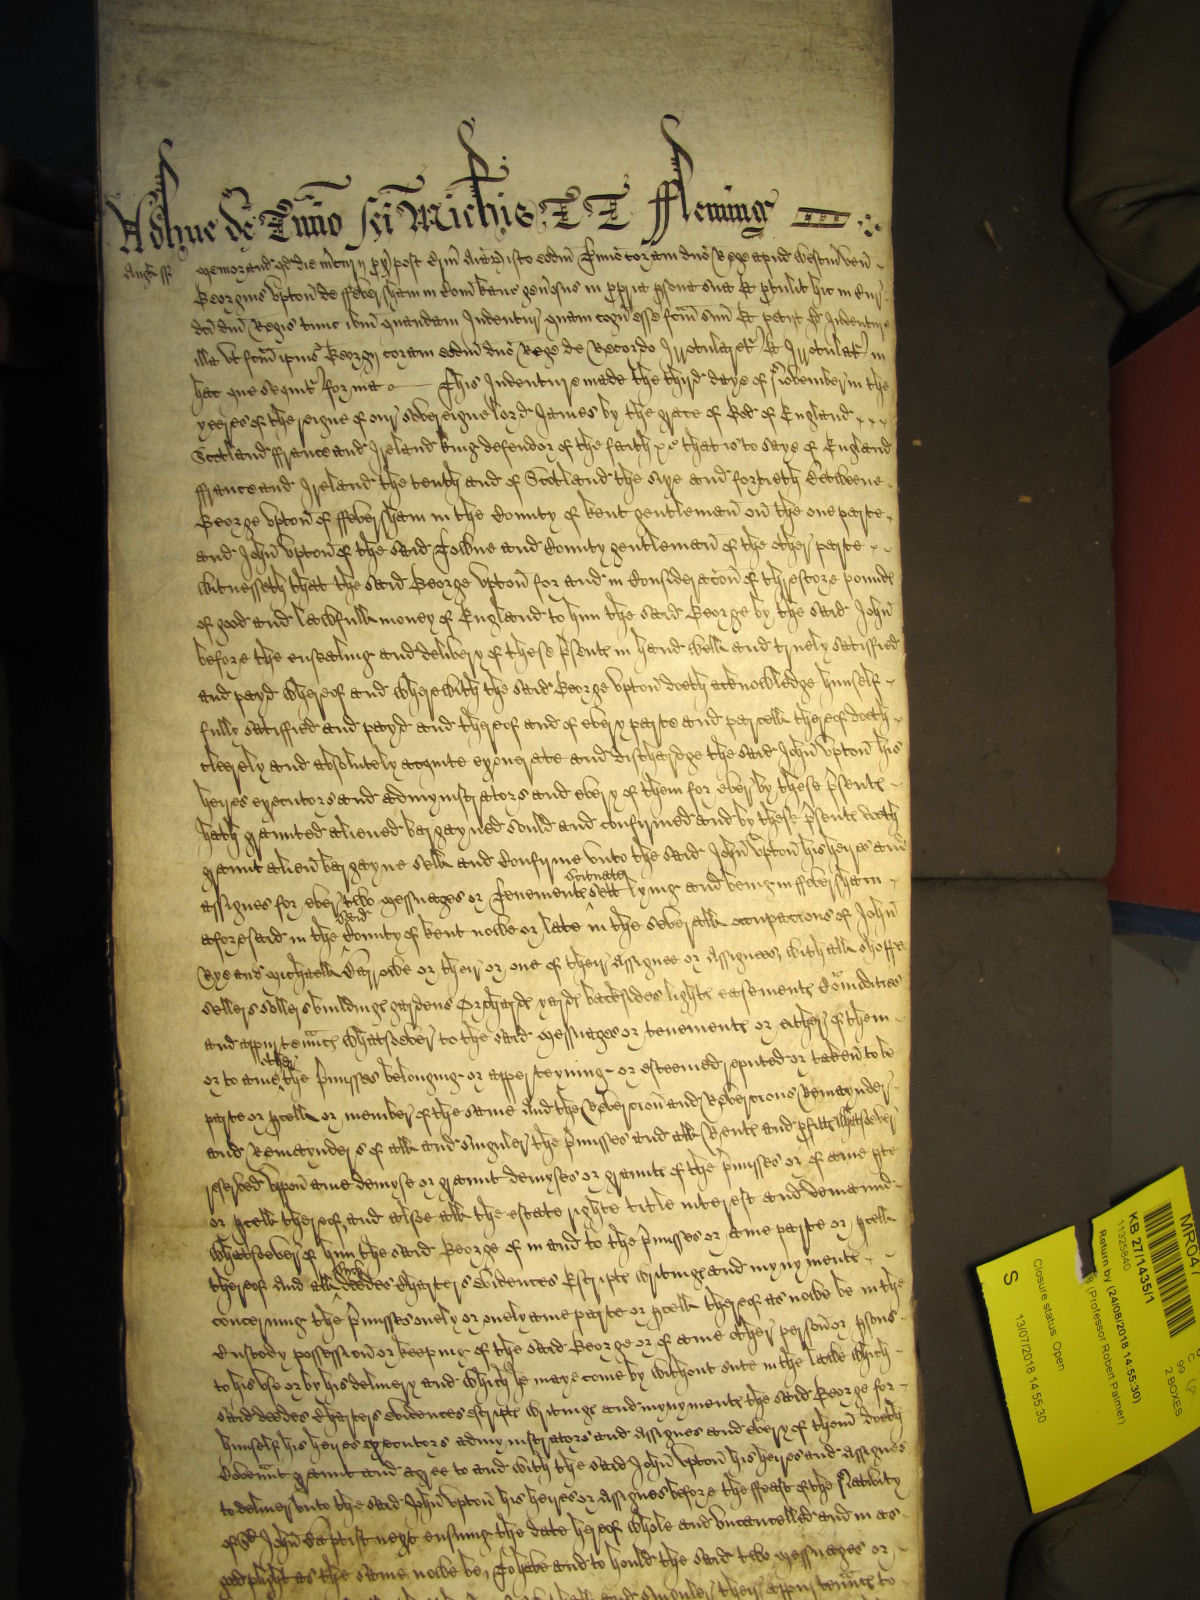 Adhuc de Tmio sci Michis T T ffleming
Angl ss Memorand qd die mcurij px post crm Aiar isto eodm Tmio coram dno Rege apud Westm ven
Georgius Upton de ffeversham in Com Kanc genosus in ppria psona sua Et ptulit hic in Cur
dci dni Regis tunc ibm quandam Indentur quam cogn esse fcm suu Et petit qd Indentur
illa vt fcm ipius Georgij coram eodm dno Rege de Recordo Irrotularetr Et Irrotulatr in
hec que sequitr forma This Indenture made the third daye of November in the
yeeres of the reigne of our Sovereigne lord James by the grace of God of England
Scotland ffrance and Ireland king defendor of the faith &c that is to saye of England
ffrance and Ireland the tenth and of Scotland the sixe and fortieth Betweene
George Upton of ffeversham in the County of Kent gentleman on the one parte
and John Upton of the said Towne and County gentleman of the other parte
Witnesseth that the said George Upton for and in Consideracon of threscore pounds
of good and lawfull money of England to him the said George by the said John
before the ensealing and delivery of these psents in hand well and truely satisfied
and payd whereof and wherewith the said George Upton doeth acknowledge himself
fully satisfied and payd and thereof and of every parte and parcell thereof doeth
clerely and absolutely acquite exonerate and discharge the said John Upton his
heires executors and admynistrators and every of them for ever by these psents
hath graunted aliened bargayned sould and confirmed and by these psents doeth
graunt alien bargayne sell and Confirme unto the said John Upton his heires and
assignes for ever two messuages or Tenements sett scituate lying and being in ffeversham
aforesaid in the said County of Kent nowe or late in the severall occupacions of John
Rye and Michaell Barrowe or their or one of their Assignee or Assignees with all shoppes
sellers sollers buildings gardens Orchards yards backsides lights easements Comodities
and apprtenncs whatsoever to the said messuages or tenements or either of them
or to anie other the pmisses belonging or apperteyning or esteemed reputed or taken to be
parte or pcell or member of the same And the Revercion and Revercions Remaynder
and Remaynders of all and singuler the pmisses and all Rents and pfitts whatsoever
reserved uppon anie demyse or graunt demyses or graunts of the pmisses or of anie pte
or pcell thereof, and alsoe all the estate righte title interest and demaund
whatsoever of him the said George of in and to the pmisses or anie parte or pcell
thereof And all such deedes Charters Evidences Escripts writings and mynyments
concerning the pmisses onely or onely anie parte or pcell thereof as nowe be in the
Custody possession or keeping of the said George or of anie other person or psons
to his use or by his delivery and which he maye come by without suite in the lawe which
said deedes Charters evidences escripts writings and mynyments the said George for
himself his heires executors admynistrators and Assignes and every of them doeth
Covennt graunt and agree to and with the said John Upton his heires and Assignes
to deliver unto the said John Upton his heires or Assignes before the ffeast of the Nativity
of St John Baptist next ensuing the date hereof whole and uncancelled and in as
good plight as the same nowe be, To have and to hould the said two messuages or
all and singuler their apprtenncs to
MR04
KB 27/1435/1
11325840
Return by (24/08/2018 14:55:30)
(Professor Robert Palmer)
Closure status Open
S
13/07/2018 14:55:30
99
2 BOXES